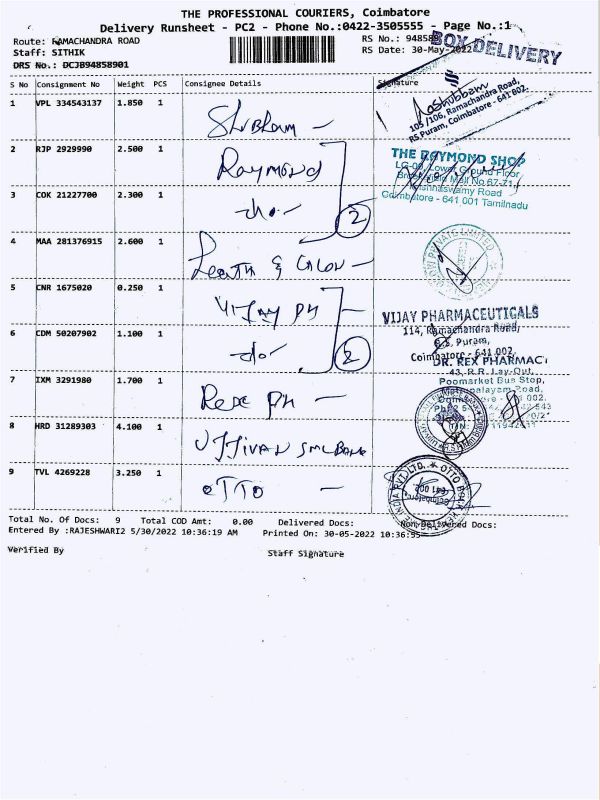 THE PROFESSIONAL COURIERS, Coimbatore
Delivery Runsheet - PC2 - Phone No.:0422-3505555 - Page No.:1
Route: RAMACHANDRA ROAD
RS No.: 94858
Staff: SITHIK
RS Date: 30-May-2022
BOX DELIVERY
DRS No.: DCJB94858901
S No Consignment No Weight PCS Consignee Details Signature
1 VPL 334543137 1.850 1 Shubham -
105 /106, Ramachandra Road,
RS Puram, Coimbatore - 641 002.
2 RJP 2929990 2.500 1 Raymond
THE RAYMOND SHOP
LG-00, Lower Ground Floor
Mall No.67-71,
Krishnaswamy Road
Coimbatore - 641 001 Tamilnadu
3 COK 21227700 2.300 1 -do- 2
4 MAA 281376915 2.600 1
PRIVATE LIMITED
5 CNR 1675020 0.250 1 Vijay PH
VIJAY PHARMACEUTICALS
114, Ramachandra Road,
R.S. Puram,
Coimbatore - 641 002.
6 CDM 50207902 1.100 1 -do- 2
DR. REX PHARMACY
43, R.R. Lay-Out,
Poomarket Bus Stop,
Mettupalayam Road,
7 IXM 3291980 1.700 1 Rex PH -
8 HRD 31289303 4.100 1
9 TVL 4269228 3.250 1 OTTO -
Total No. Of Docs: 9 Total COD Amt: 0.00 Delivered Docs: Non-Delivered Docs:
Entered By :RAJESHWARI2 5/30/2022 10:36:19 AM Printed On: 30-05-2022 10:36:95
Verified By Staff Signature